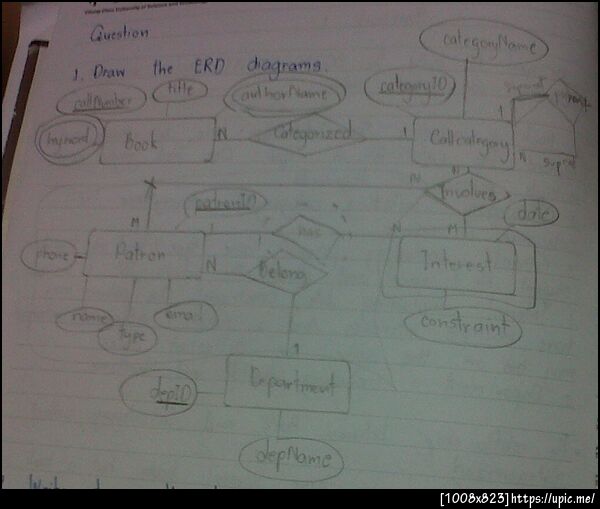 Question
1. Draw the ERD diagrams.
categoryName
callNumber
title
authorName
categoryID
keyword
Book
N
Categorized
1
Callcategory
1
parent
N
N
Involves
date
patronID
M
N
M
phone
Patron
1
has
N
Belong
Interest
name
type
email
constraint
1
depID
Department
depName
[1008x823] https://upic.me/